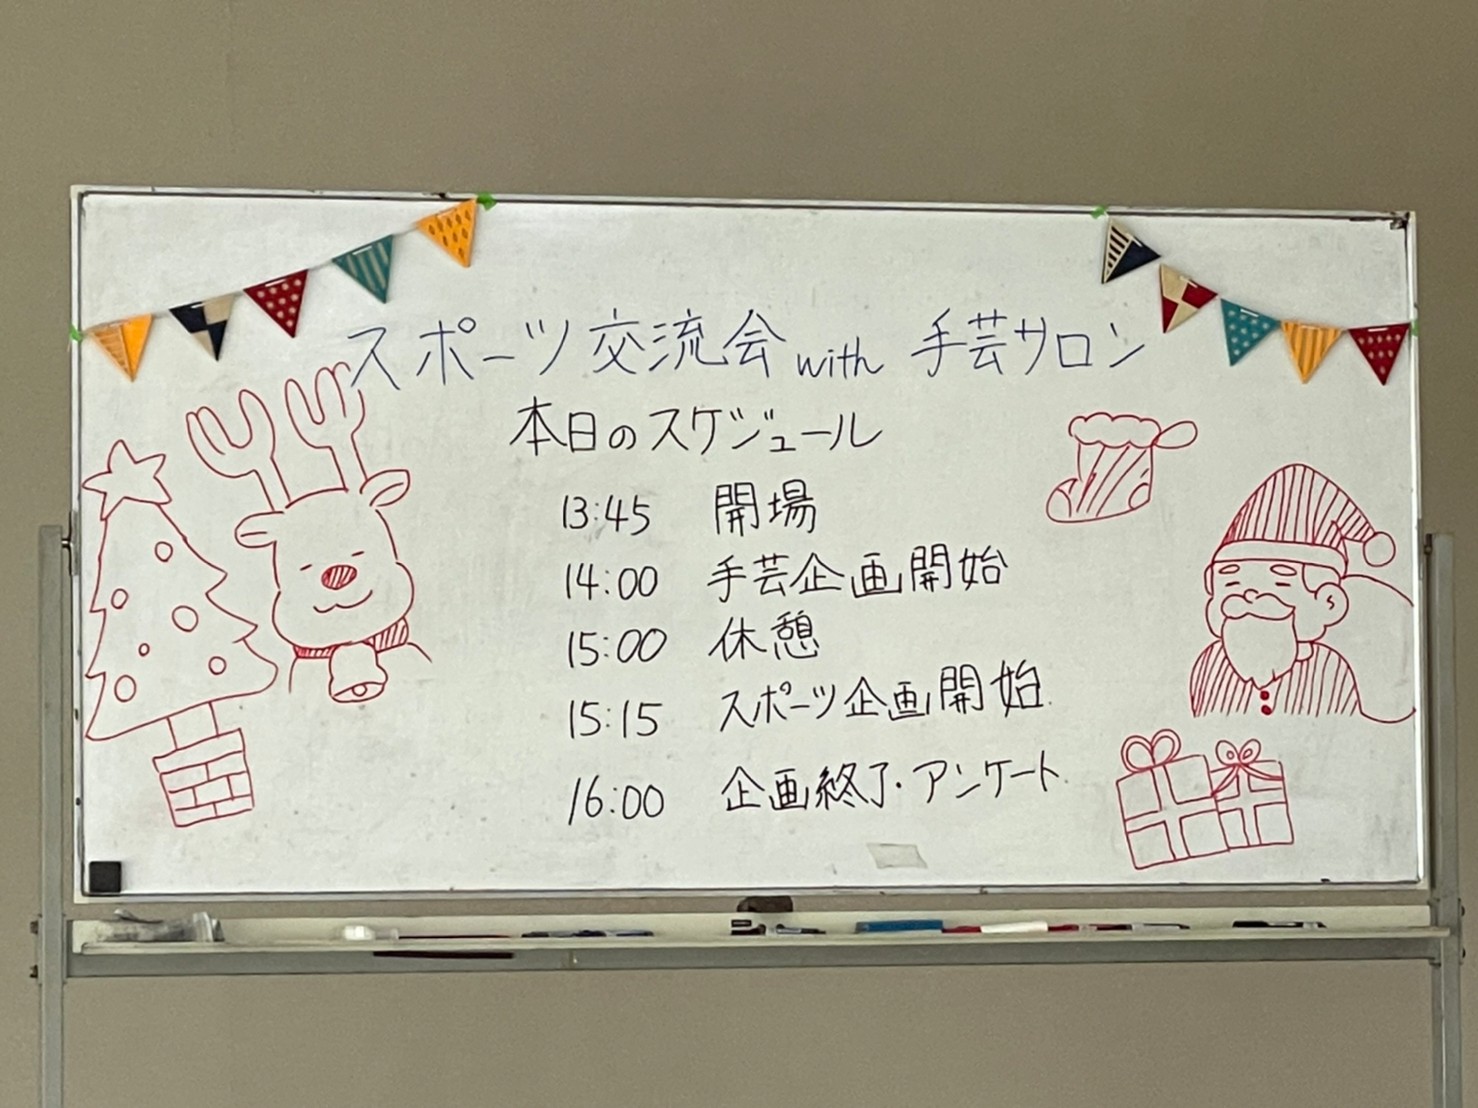 スポーツ交流会 with 手芸サロン
本日のスケジュール
13:45 開場
14:00 手芸企画開始
15:00 休憩
15:15 スポーツ企画開始
16:00 企画終了・アンケート